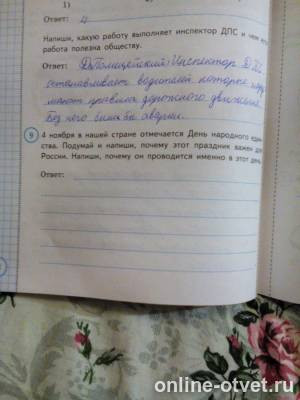 1)
Ответ: 4
Напиши, какую работу выполняет инспектор ДПС и чем его
работа полезна обществу.
Ответ: Полицейский Инспектор ДПС
останавливает водителей которые нару
шают правила дорожного движения
Без него были бы аварии.
9 4 ноября в нашей стране отмечается День народного един-
ства. Подумай и напиши, почему этот праздник важен для
России. Напиши, почему он проводится именно в этот день.
Ответ:
online-otvet.ru